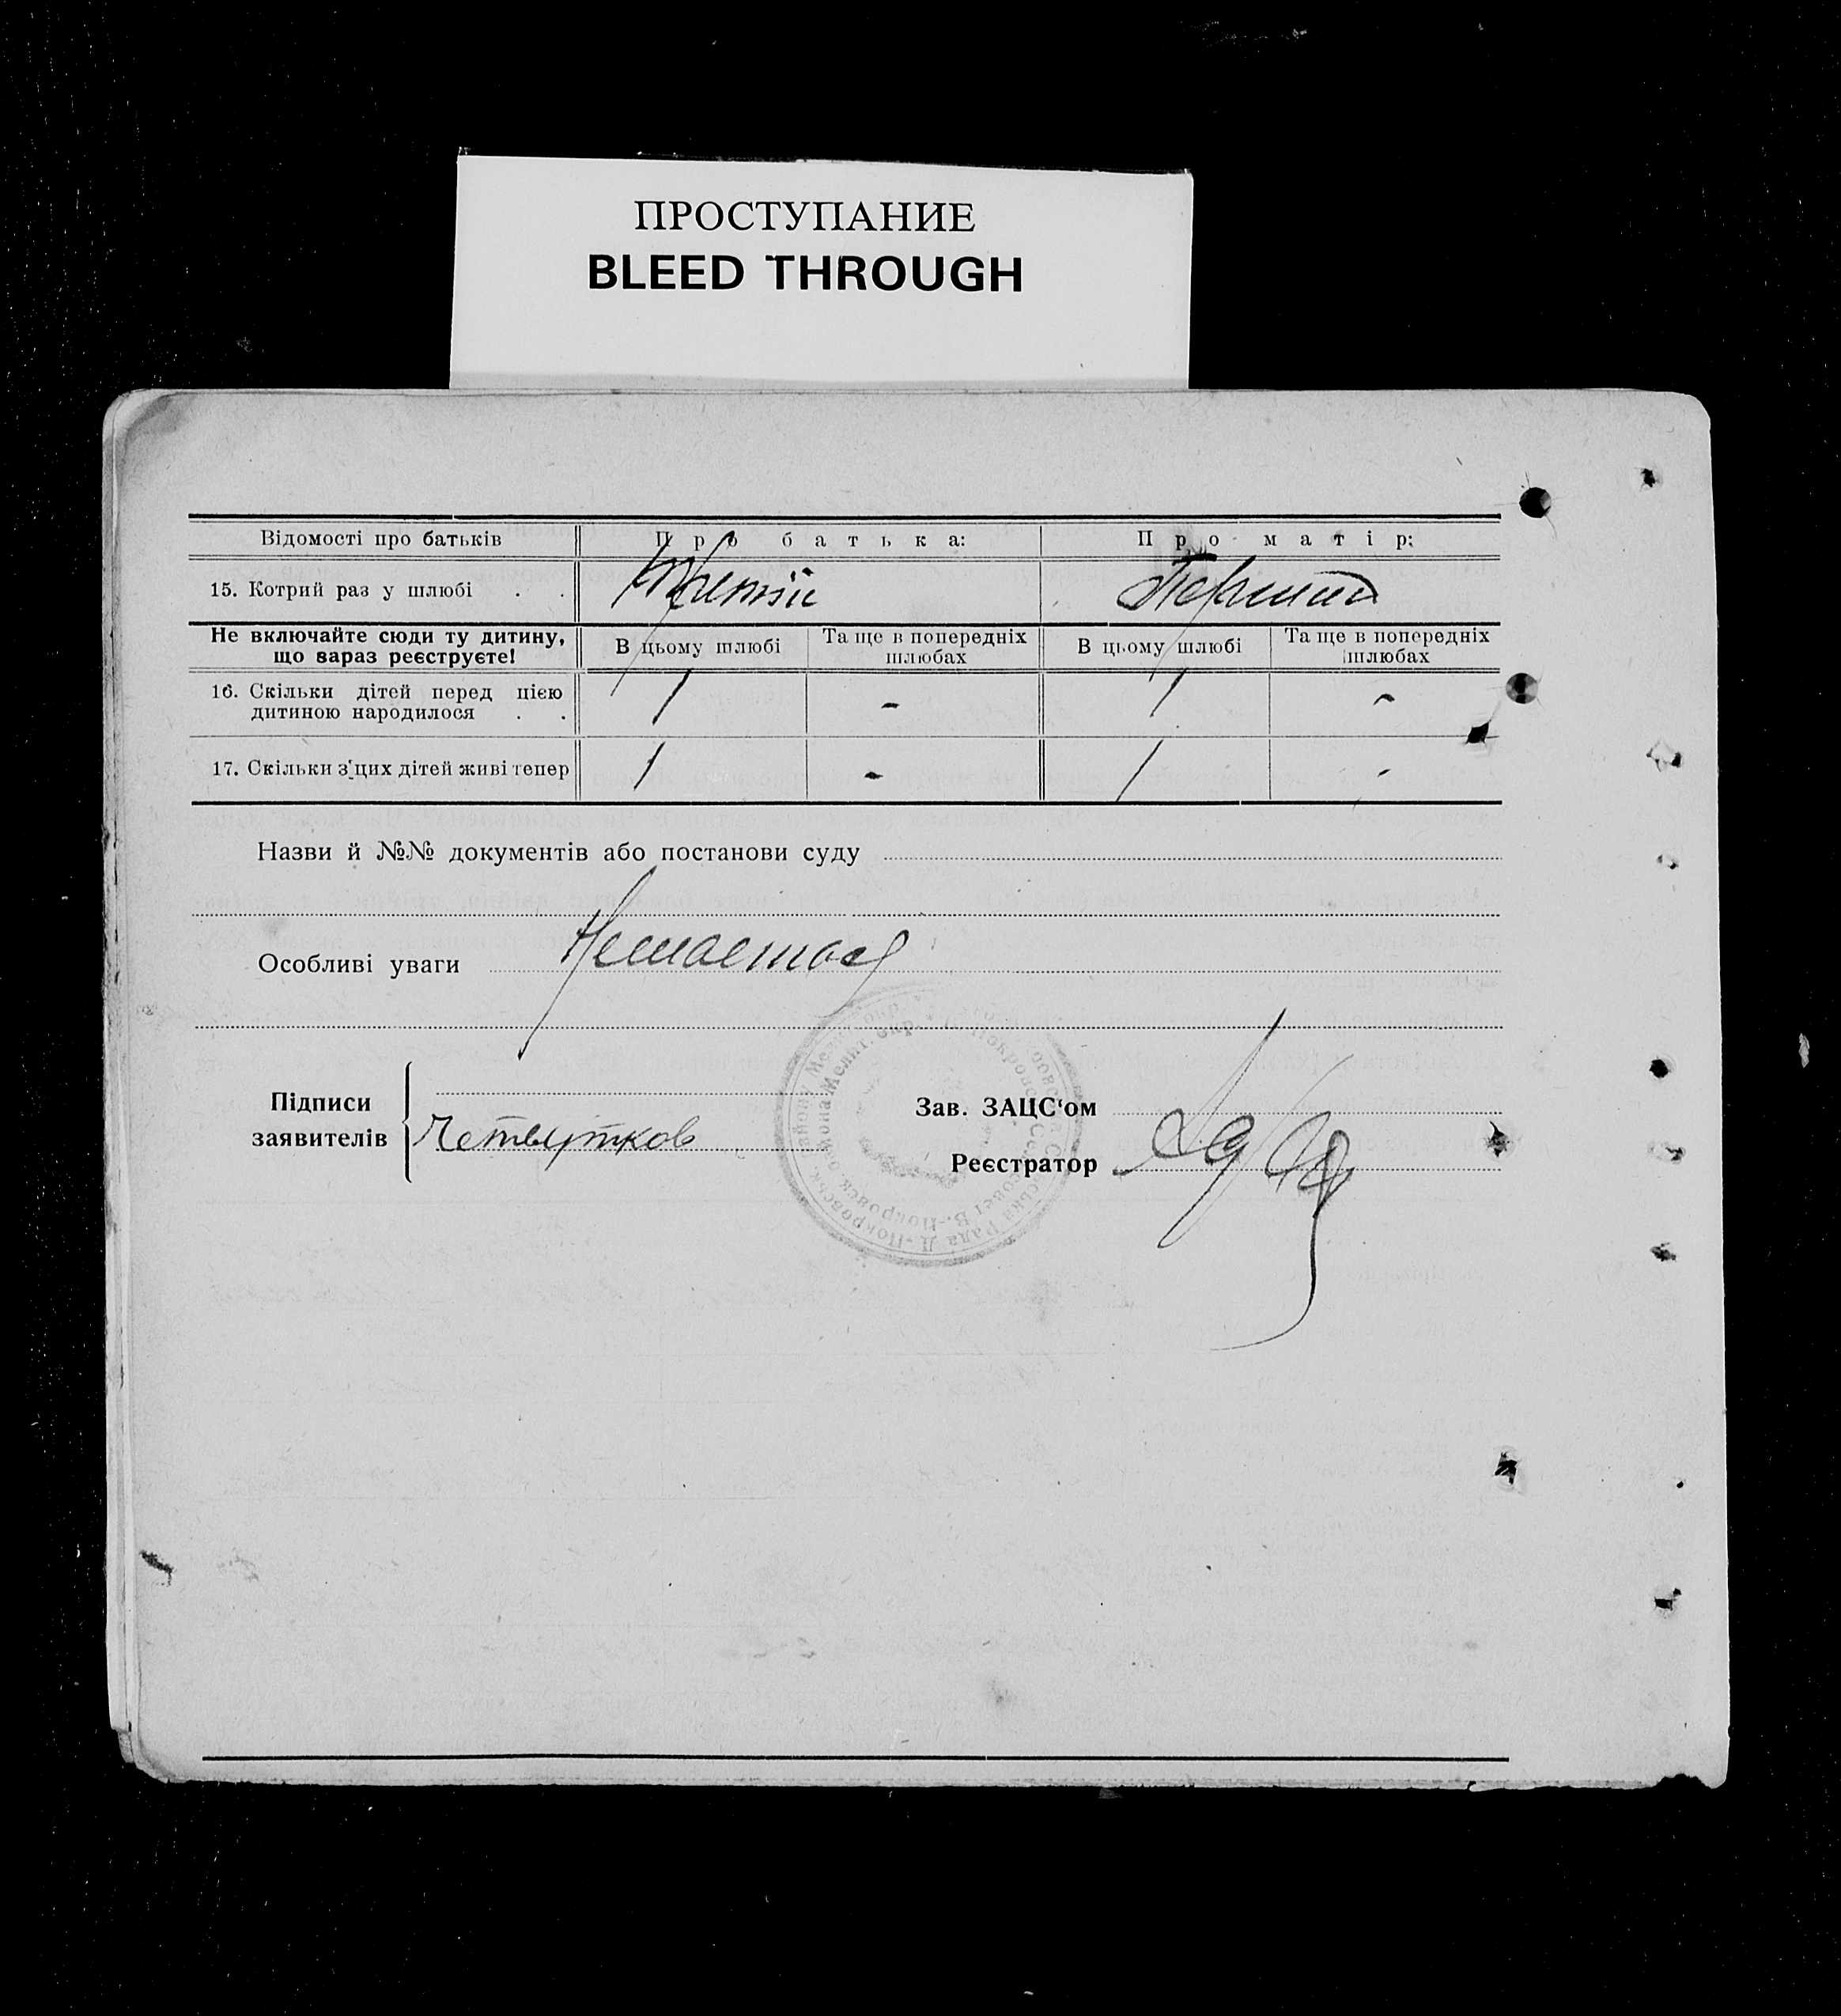 ПРОСТУПАНИЕ
BLEED THROUGH
Відомості про батьків Про батька: Про матір:
15. Котрий раз у шлюбі . . Третій Перший
Не включайте сюди ту дитину, що зараз реєструєте! В цьому шлюбі Та ще в попередніх шлюбах В цьому шлюбі Та ще в попередніх шлюбах
16. Скільки дітей перед цією дитиною народилося . . 1 - 1 -
17. Скільки з'цих дітей живі тепер 1 - 1 -
Назви й №№ документів або постанови суду
Особливі уваги
Підписи заявителів Четвертков
Зав. ЗАЦС'ом
Реєстратор